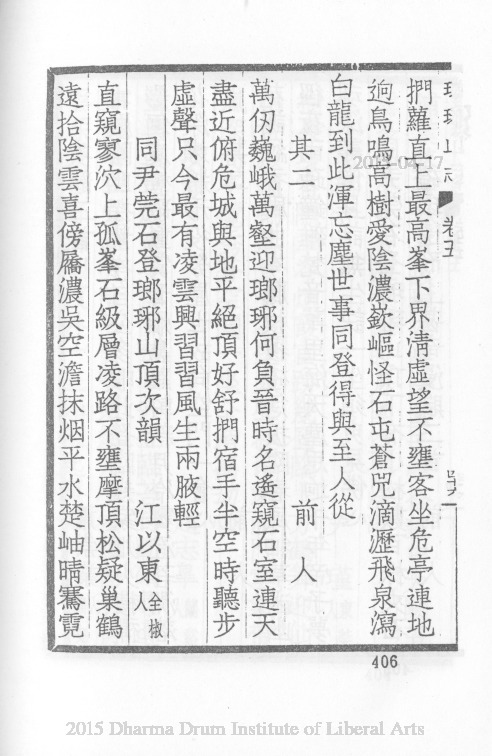 瑯琊山志 卷五
捫蘿直上最高峯下界清虛望不壅客坐危亭連地
逈鳥鳴高樹愛陰濃嶔嶇怪石屯蒼兕滴瀝飛泉瀉
白龍到此渾忘塵世事同登得與至人從
其二 前人
萬仞巍峨萬壑迎瑯琊何負晉時名遙窺石室連天
盡近俯危城與地平絕頂好舒捫宿手半空時聽步
虛聲只今最有凌雲興習習風生兩腋輕
同尹莞石登瑯琊山頂次韻 江以東全椒人
直窺寥泬上孤峯石級層凌路不壅摩頂松疑巢鶴
遠拾陰雲喜傍屩濃吳空澹抹烟平水楚岫晴騫霓
406
2015 Dharma Drum Institute of Liberal Arts